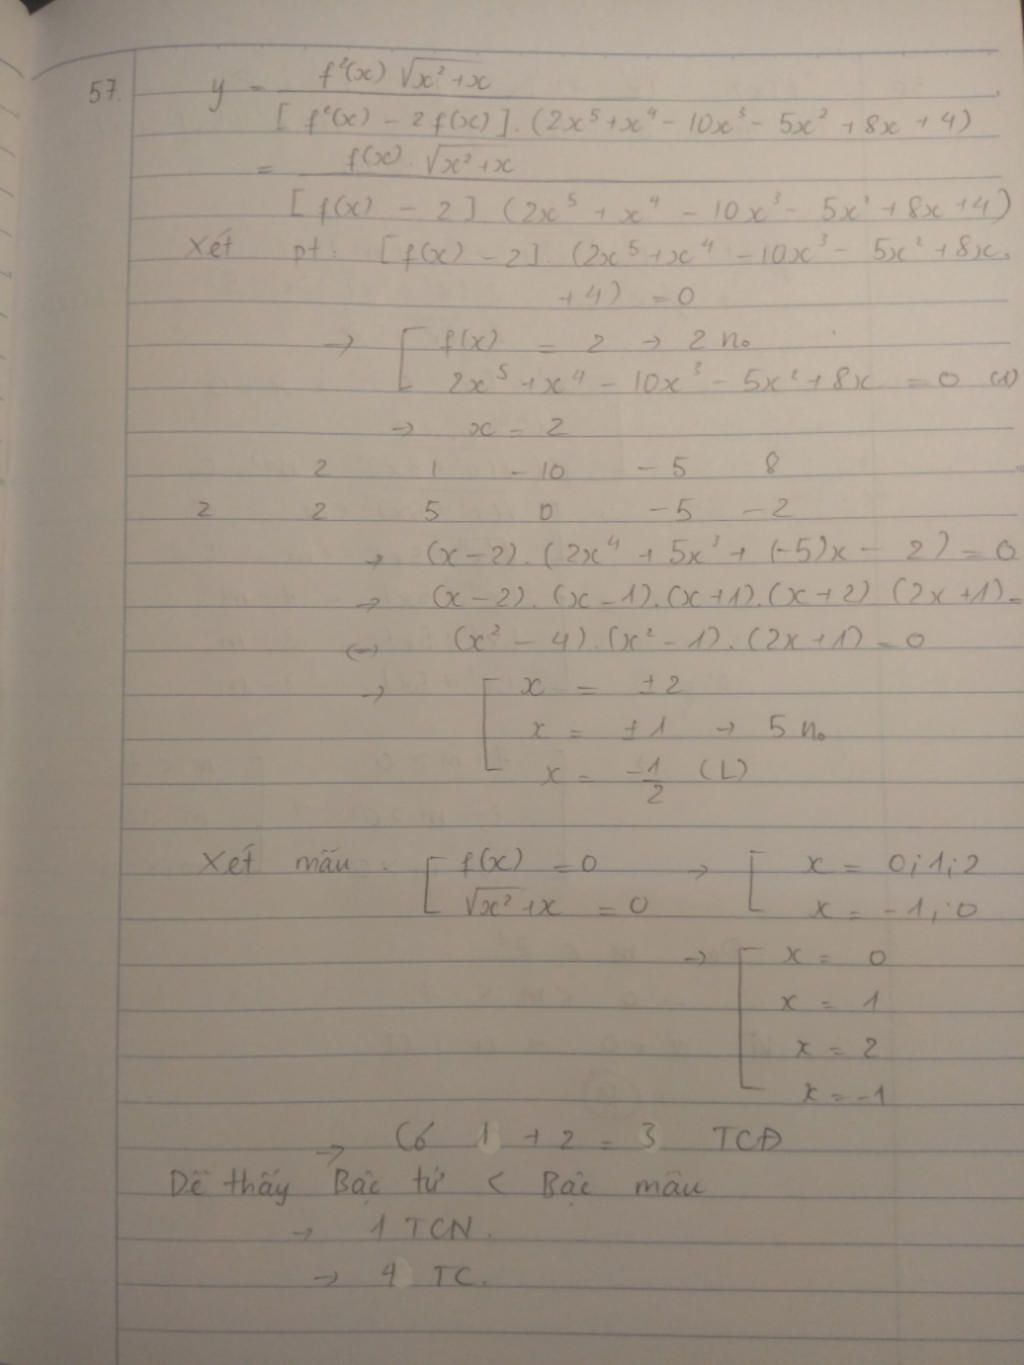 57. y = f²(x) √x²+x
[ f²(x) - 2f(x) ]. (2x⁵+x⁴- 10x³- 5x² + 8x + 4)
= f(x). √x²+x
[ f(x) - 2 ] (2x⁵ + x⁴ - 10x³- 5x² + 8x + 4)
Xét pt: [f(x) -2]. (2x⁵+x⁴ -10x³- 5x² +8x
+4) = 0
→ [ f(x) = 2 → 2 n₀
2x⁵ +x⁴ - 10x³ - 5x²+8x = 0 (1)
→ x = 2
2 1 -10 -5 8
2 2 5 0 -5 -2
→ (x-2). (2x⁴ + 5x³ + (-5)x - 2) = 0
→ (x-2). (x-1). (x+1). (x+2) (2x+1)=
(→) (x² - 4).(x²-1). (2x+1) = 0
→ [ x = ±2
x = ±1 → 5 n₀
x = -1/2 (L)
Xét mẫu. [ f(x) = 0 → [ x = 0;1;2
√x²+x = 0 x = -1; 0
→ [ x = 0
x = 1
x = 2
x = -1
→ Có 1 + 2 = 3 TCĐ
Dễ thấy Bậc tử < Bậc mẫu
→ 1 TCN.
→ 4 TC.